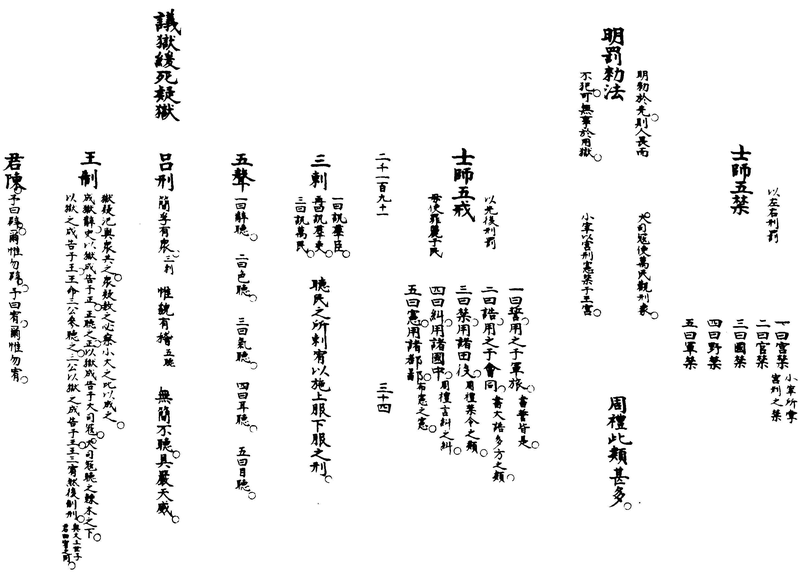 明罰勑法
明勑於先則人畏而
不犯可無事於用獄
士師五禁
以左右刑罰
一曰宮禁
小宰所掌
宮刑之禁
二曰官禁
三曰國禁
四曰野禁
五曰軍禁
大司寇使萬民觀刑象
小宰以宮刑憲禁于王宮
周禮此類甚多
士師五戒
以先後刑罰
毋使罪麗于民
一曰誓用之于軍旅 書誓皆是
二曰誥用之于會同 書大誥多方之類
三曰禁用諸田役 周禮禁令之類
四曰糾用諸國中 周禮言糾之糾
五曰憲用諸都鄙 布憲之憲
二千一百九十一 三十四
議獄緩死疑獄
三刺
一曰訊羣臣
再曰訊羣吏
三曰訊萬民
聽民之所刺宥以施上服下服之刑
五聲
一曰辭聽 二曰色聽 三曰氣聽 四曰耳聽 五曰目聽
呂刑
簡孚有衆 三刺 惟貌有稽 五聽 無簡不聽具嚴天威
王制
獄疑汜與衆共之衆疑赦之必察小大之比以成之
成獄辭史以獄成告于正正聽之正以獄成告于大司寇大司寇聽之棘木之下
以獄之成告于王王命三公參聽之三公以獄之成告于王王三宥然後制刑
與文王世子
君陳
予曰辟爾惟勿辟予曰宥爾惟勿宥